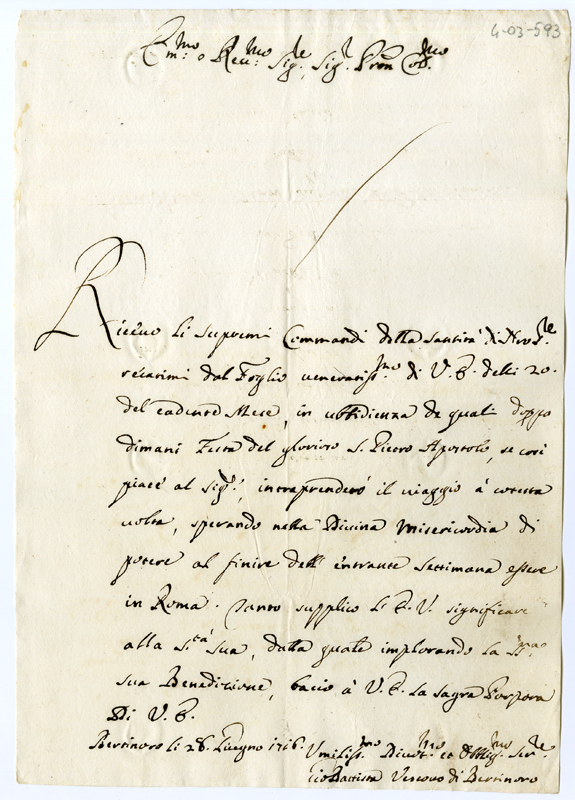 4-03-593
Em:mo e Reu:mo Sig.re, Sig.r Pron Col.mo
Riceuo li supremi Commandi della Santità di Nro Sre
recatimi dal Foglio veneratiss.mo di V. E. delli 20.
del cadente Mese, in ubbidienza de quali doppo
dimani Festa del glorioso S. Pietro Apostolo, se così
piace al Sig.r, intraprenderò il viaggio à cotesta
volta, sperando nella Divina Misericordia di
potere al finire dell' entrante Settimana essere
in Roma. Tanto supplico l' E. V. significare
alla S.tà Sua, dalla quale implorando la S.ma
sua Benedizione, bacio à V. E. la sagra Porpora
Di V. E.
Bertinoro li 28. Giugno 1716.
Umiliss.mo Diuot.mo et Obblig.mo Ser.re
Gio Battista Vescouo di Bertinoro